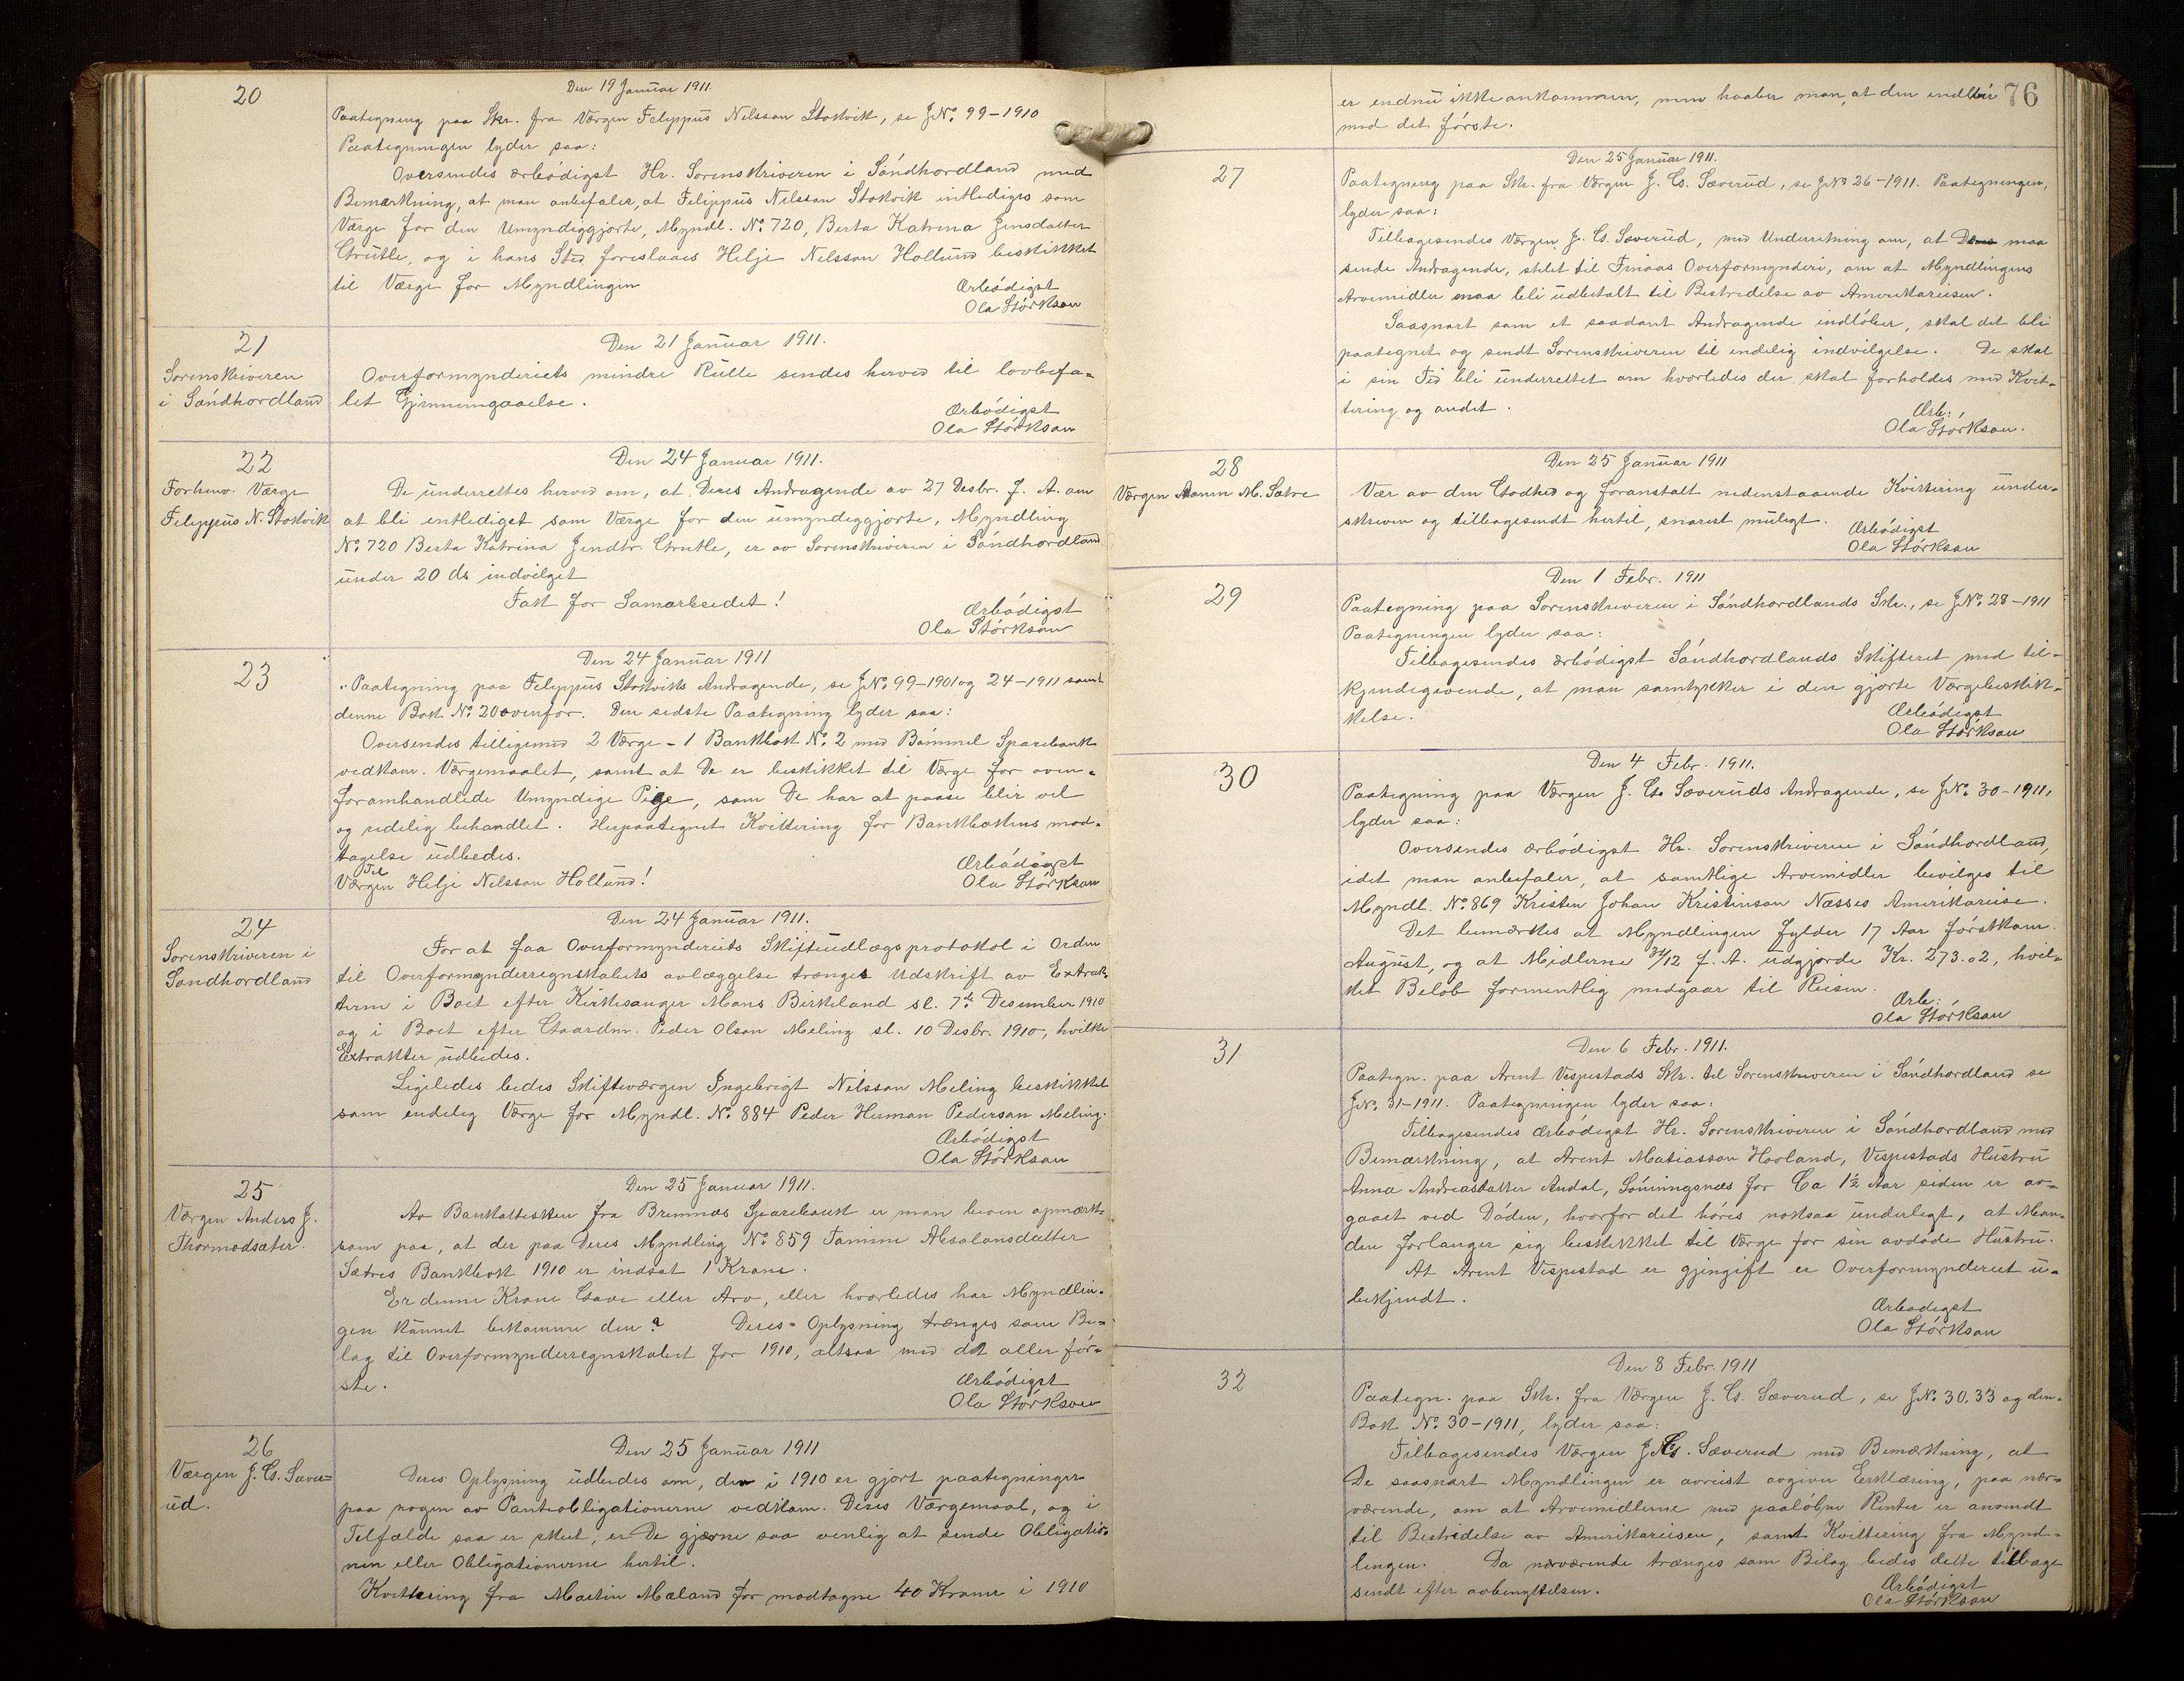 20
Den 19 Januar 1911.
Paategning paa Skr. fra Værgen Felippus Nelsson Stokvik, se JNo. 99-1910
Paategningen lyder saa:
Oversendes ærbødigst Hr. Sorenskriveren i Søndhordland med
Bemærkning, at man anbefaler, at Felippus Nelsson Stokvik entlediges som
Værge for den Umyndiggjorte, Myndl. No. 720, Berta Katrina Jensdatter
Grutle, og i hans Sted foreslaaes Helje Nelsson Hollund beskikket
til Værge for Myndlingen
Ærbødigst
Ola Størkson
21
Sorenskriveren
i Søndhordland
Den 21 Januar 1911.
Overformynderiets mindre Rulle sendes herved til lovbefa-
let Gjennemgaaelse.
Ærbødigst
Ola Størkson
22
Forhenv. Værge
Felippus N. Stokvik
Den 24 Januar 1911.
De underrettes herved om, at Deres Andragende av 27 Desbr. f. A. om
at bli entlediget som Værge for den umyndiggjorte, Myndling
No. 720 Berta Katrina Jensdtr. Grutle, er av Sorenskriveren i Søndhordland
under 20 ds indvilget
Takk for Samarbeidet!
Ærbødigst
Ola Størkson
23
Den 24 Januar 1911
Paategning paa Felippus Stokviks Andragende, se JNo. 99-1901 og 24-1911 samt
denne Bok No. 20 ovenfor. Den sidste Paategning lyder saa:
Oversendes tilligemed 2 Værge - 1 Bankbok No. 2 med Bømmel Sparebank
vedkom. Værgemaalet, samt at De er beskikket til Værge for oven-
foromhandlede Umyndige Pige, som De har at paase blir vel
og redelig behandlet. Herpaategnet Kvittering for Bankbokens mod-
tagelse udbedes.
Til
Værgen Helje Nelsson Hollund!
Ærbødigst
Ola Størkson
24
Sorenskriveren i
Søndhordland
Den 24 Januar 1911.
For at faa Overformynderiets Skifteudlægsprotokol i Orden
til Overformynderregnskabets avlæggelse trænges Udskrift av Extrak-
terne i Boet efter Kirkesanger Mons Birkeland sl. 7de Desember 1910
og i Boet efter Gaardm. Peder Olson Meling sl. 10 Desbr. 1910, hvilke
Extrakter udbedes.
Ligeledes bedes Skifteværgen Ingebrigt Nelsson Meling beskikket
som endelig Værge for Myndl. No. 884 Peder Herman Pederson Meling.
Ærbødigst
Ola Størkson
25
Værgen Anders J.
Thormodsæter.
Den 25 Januar 1911.
Av Bankattesten fra Bremnes Sparebank er man bleven opmærk-
som paa, at der paa Deres Myndling No. 859 Tamine Absalonsdatter
Sætres Bankbok 1910 er indsat 1 Krone.
Er denne Krone Gave eller Arv, eller hvorledes har Myndlin-
gen kunnet bekomme den? Deres Oplysning trænges som Bi-
lag til Overformynderregnskabet for 1910, altsaa med det aller før-
ste.
Ærbødigst
Ola Størkson
26
Værgen J. G. Sæver-
ud.
Den 25 Januar 1911
Deres Oplysning udbedes om, der i 1910 er gjort paategninger
paa nogen av Panteobligationerne vedkom. Deres Værgemaal, og i
Tilfælde saa er skeet, er De gjærne saa venlig at sende Obligatio-
nen eller Obligationerne hertil.
Kvittering fra Martin Mæland for modtagne 40 Kroner i 1910
76
er endnu ikke ankommen, men haaber man, at den indløber
med det første.
27
Den 25 Januar 1911.
Paategning paa Skr. fra Værgen J. G. Sæverud, se JNo 26-1911. Paategningen,
lyder saa:
Tilbagesendes Værgen J. G. Sæverud, med Underretning om, at maa
sende Andragende, stilet til Finaas Overformynderi, om at Myndlingens
Arvemidler maa bli udbetalt til Bestridelse av Amerikareisen.
Saasnart som et saadant Andragende indløber, skal det bli
paategnet og sendt Sorenskriveren til endelig indvilgelse. De skal
i sin Tid bli underrettet om hvorledes der skal forholdes med Kvit-
tering og andet.
Ærb.
Ola Størkson.
28
Værgen M. Sætre
Den 25 Januar 1911
Vær av den Godhed og foranstalt nedenstaaende Kvittering under-
skreven og tilbagesendt hertil, snarest muligt.
Ærbødigst
Ola Størkson
29
Den 1 Febr. 1911
Paategning paa Sorenskriveren i Søndhordlands Skr., se JNo. 28-1911
Paategningen lyder saa:
Tilbagesendes ærbødigst Søndhordlands Skifteret med til-
kjendegivende, at man samtykker i den gjorte Værgebeskik-
kelse.
Ærbødigst
Ola Størkson
30
Den 4 Febr. 1911.
Paategning paa Værgen J. G. Sæveruds Andragende, se JNo. 30-1911,
lyder saa:
Oversendes ærbødigst Hr. Sorenskriveren i Søndhordland,
idet man anbefaler, at samtlige Arvemidler bevilges til
Myndl. No. 869 Kristen Johan Kristenson Næsses Amerikareise.
Det bemærkes at Myndlingen fylder 17 Aar førstkom.
August, og at Midlerne 31/12 f. A. udgjorde Kr. 273.02, hvil-
ket Beløb formentlig medgaar til Reisen.
Ærb.
Ola Størkson
31
Den 6 Febr. 1911.
Paategn. paa Arent Vespestads Skr. til Sorenskriveren i Søndhordland se
JNo. 31-1911. Paategningen lyder saa:
Tilbagesendes Ærbødigst Hr. Sorenskriveren i Søndhordland med
Bemærkning, at Arent Matiasson Hovland, Vespestads Hustru
Anna Andreasdatter Andal, Lønningsnæs for Ca 1½ Aar siden er av-
gaaet ved Døden, hvorfor det høres noksaa underligt, at Man-
den forlanger sig beskikket til Værge for sin avdøde Hustru.
At Arent Vespestad er gjengift er Overformynderiet u-
bekjendt.
Ærbødigst
Ola Størkson
32
Den 8 Febr. 1911
Paategn. paa Skr. fra Værgen J. G. Sæverud, se JNo. 30, 33 og den.
Bok No. 30-1911, lyder saa:
Tilbagesendes Værgen J. G. Sæverud med Bemærkning, at
De saasnart Myndlingen er avreist avgiver Erklæring, paa nær-
værende, om at Arvemidlerne med paaløbne Renter er anvendt
til Bestridelse av Amerikareisen, samt Kvittering fra Mynd-
lingen. Da nærværende trænges som Bilag bedes dette tilbage
sendt efter avbenyttelsen.
Ærbødigst
Ola Størkson